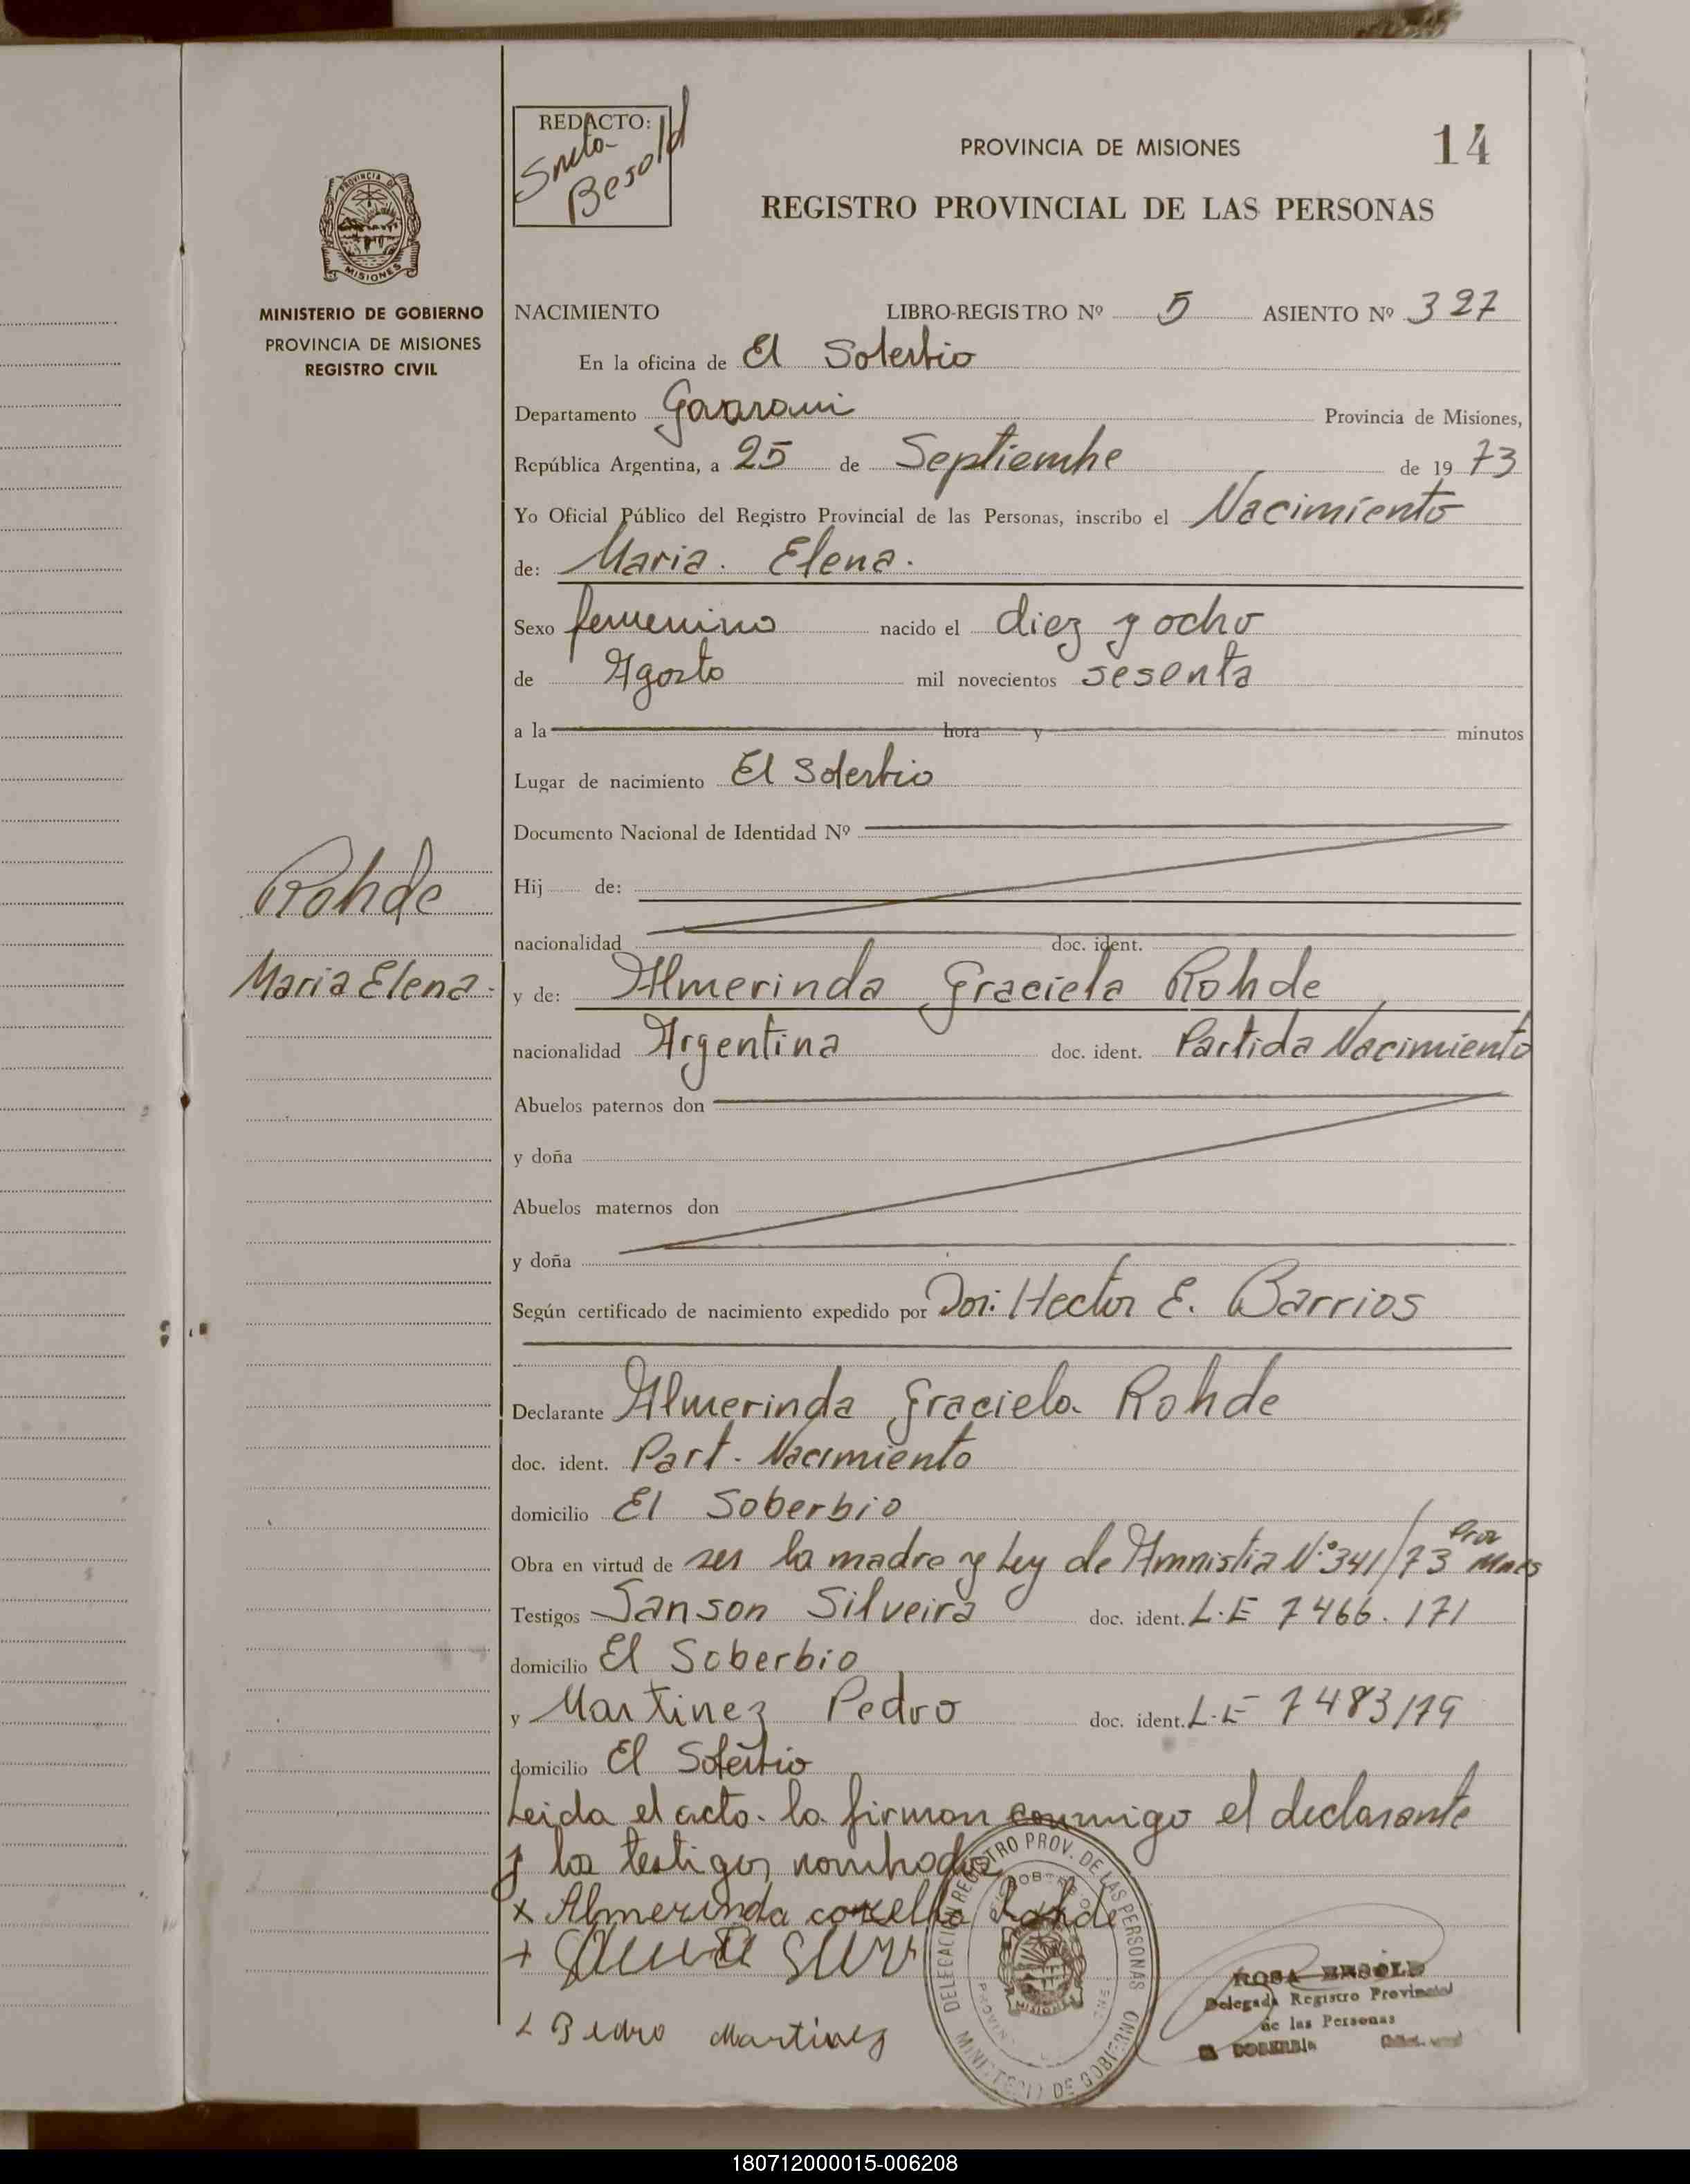 REDACTO:
Besold
PROVINCIA DE MISIONES
14
REGISTRO PROVINCIAL DE LAS PERSONAS
PROVINCIA D
MISIONES
MINISTERIO DE GOBIERNO
PROVINCIA DE MISIONES
REGISTRO CIVIL
NACIMIENTO LIBRO-REGISTRO Nº 5 ASIENTO Nº 327
En la oficina de El Soberbio
Departamento Guarani Provincia de Misiones,
República Argentina, a 25 de Septiembre de 19 73
Yo Oficial Público del Registro Provincial de las Personas, inscribo el Nacimiento
de: Maria. Elena.
Sexo femenino nacido el diez y ocho
de Agosto mil novecientos sesenta
a la hora y minutos
Lugar de nacimiento El Soberbio
Documento Nacional de Identidad Nº
Hij de:
nacionalidad doc. ident.
Rohde
Maria Elena.
y de: Almerinda Graciela Rohde
nacionalidad Argentina doc. ident. Partida Nacimiento
Abuelos paternos don
y doña
Abuelos maternos don
y doña
Según certificado de nacimiento expedido por Hector E. Barrios
Declarante Almerinda Graciela Rohde
doc. ident. Part. Nacimiento
domicilio El Soberbio
Obra en virtud de ser la madre y Ley de Amnistia N:º 341/73 Prov Mnes
Testigos Sanson Silveira doc. ident. L.E 7466.171
domicilio El Soberbio
y Martinez Pedro doc. ident. L.E 7483179
domicilio El Soberbio
Leida el acto. la firman conmigo el declarante
y los testigos nombrados
x Almerinda Rohde
Pedro Martinez
DELEGACION REGISTRO PROV. DE LAS PERSONAS
MINISTERIO DE GOBIERNO
ROSA BESOLD
Delegada Registro Provincial
de las Personas
SOBERBIO
180712000015-006208